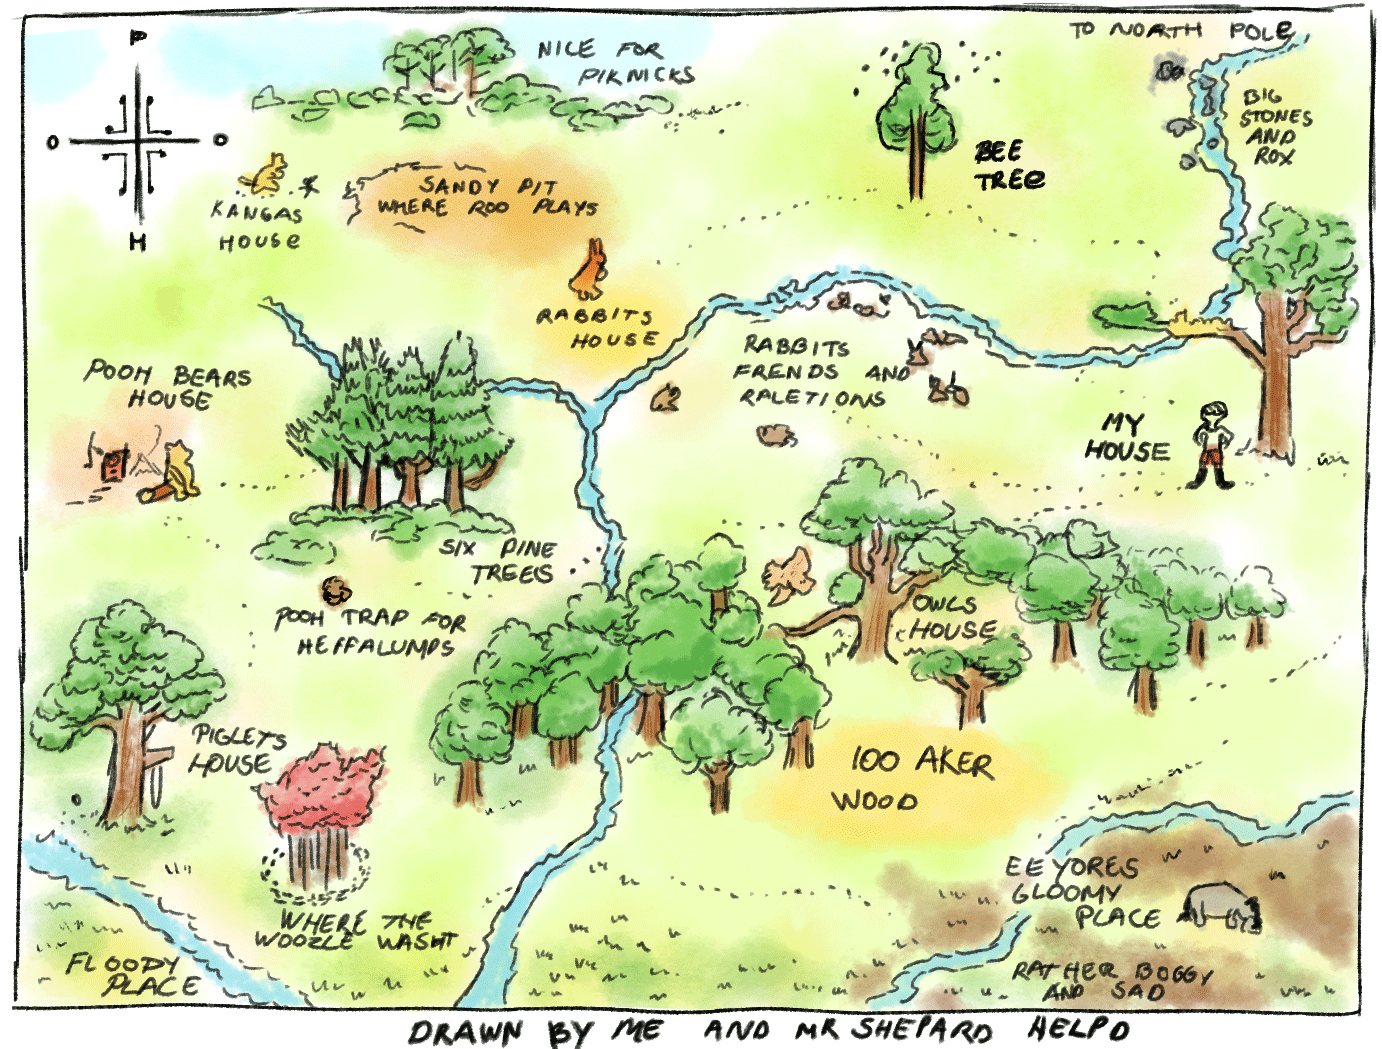 TO NORTH POLE
P
O
O
H
NICE FOR
PIKNICKS
BIG
STONES
AND
ROX
BEE
TREE
KANGAS
HOUSE
SANDY PIT
WHERE ROO PLAYS
RABBITS
HOUSE
RABBITS
FRENDS AND
RALETIONS
POOH BEARS
HOUSE
MY
HOUSE
SIX PINE
TREES
POOH TRAP FOR
HEFFALUMPS
OWLS
HOUSE
PIGLETS
HOUSE
100 AKER
WOOD
WHERE THE
WOOZLE WASNT
EEYORES
GLOOMY
PLACE
FLOODY
PLACE
RATHER BOGGY
AND SAD
DRAWN BY ME AND MR SHEPARD HELPD